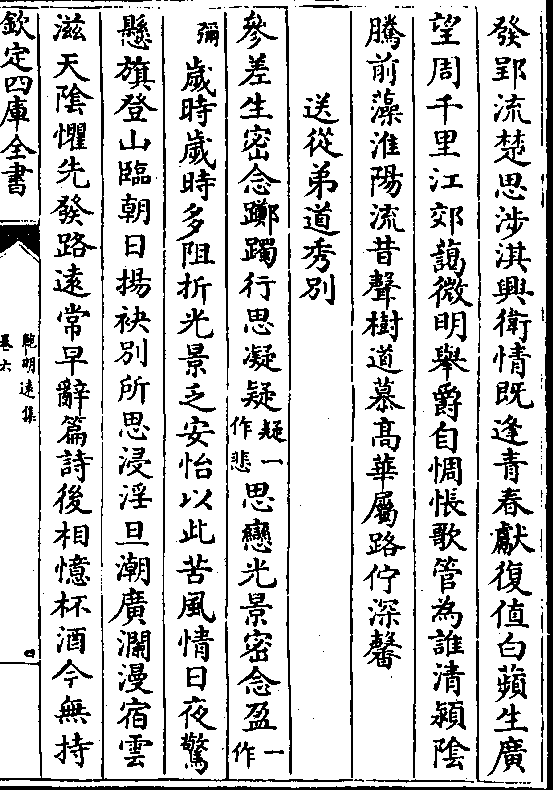 發郢流楚思涉淇興衛情既逢青春獻復值白蘋生廣
望周千里江郊藹微明舉爵自惆悵歌管為誰清潁陰
騰前藻淮陽流昔聲樹道慕高華屬路佇深馨
送從弟道秀別
參差生密念躑躅行思凝疑疑一作悲思戀光景密念盈一作
彌歲時歲時多阻折光景乏安怡以此苦風情日夜驚
懸旗登山臨朝日揚袂別所思浸淫旦潮廣瀾漫宿雲
滋天陰懼先發路遠常早辭篇詩後相憶杯酒今無持
欽定四庫全書
鮑明遠集
卷六
四